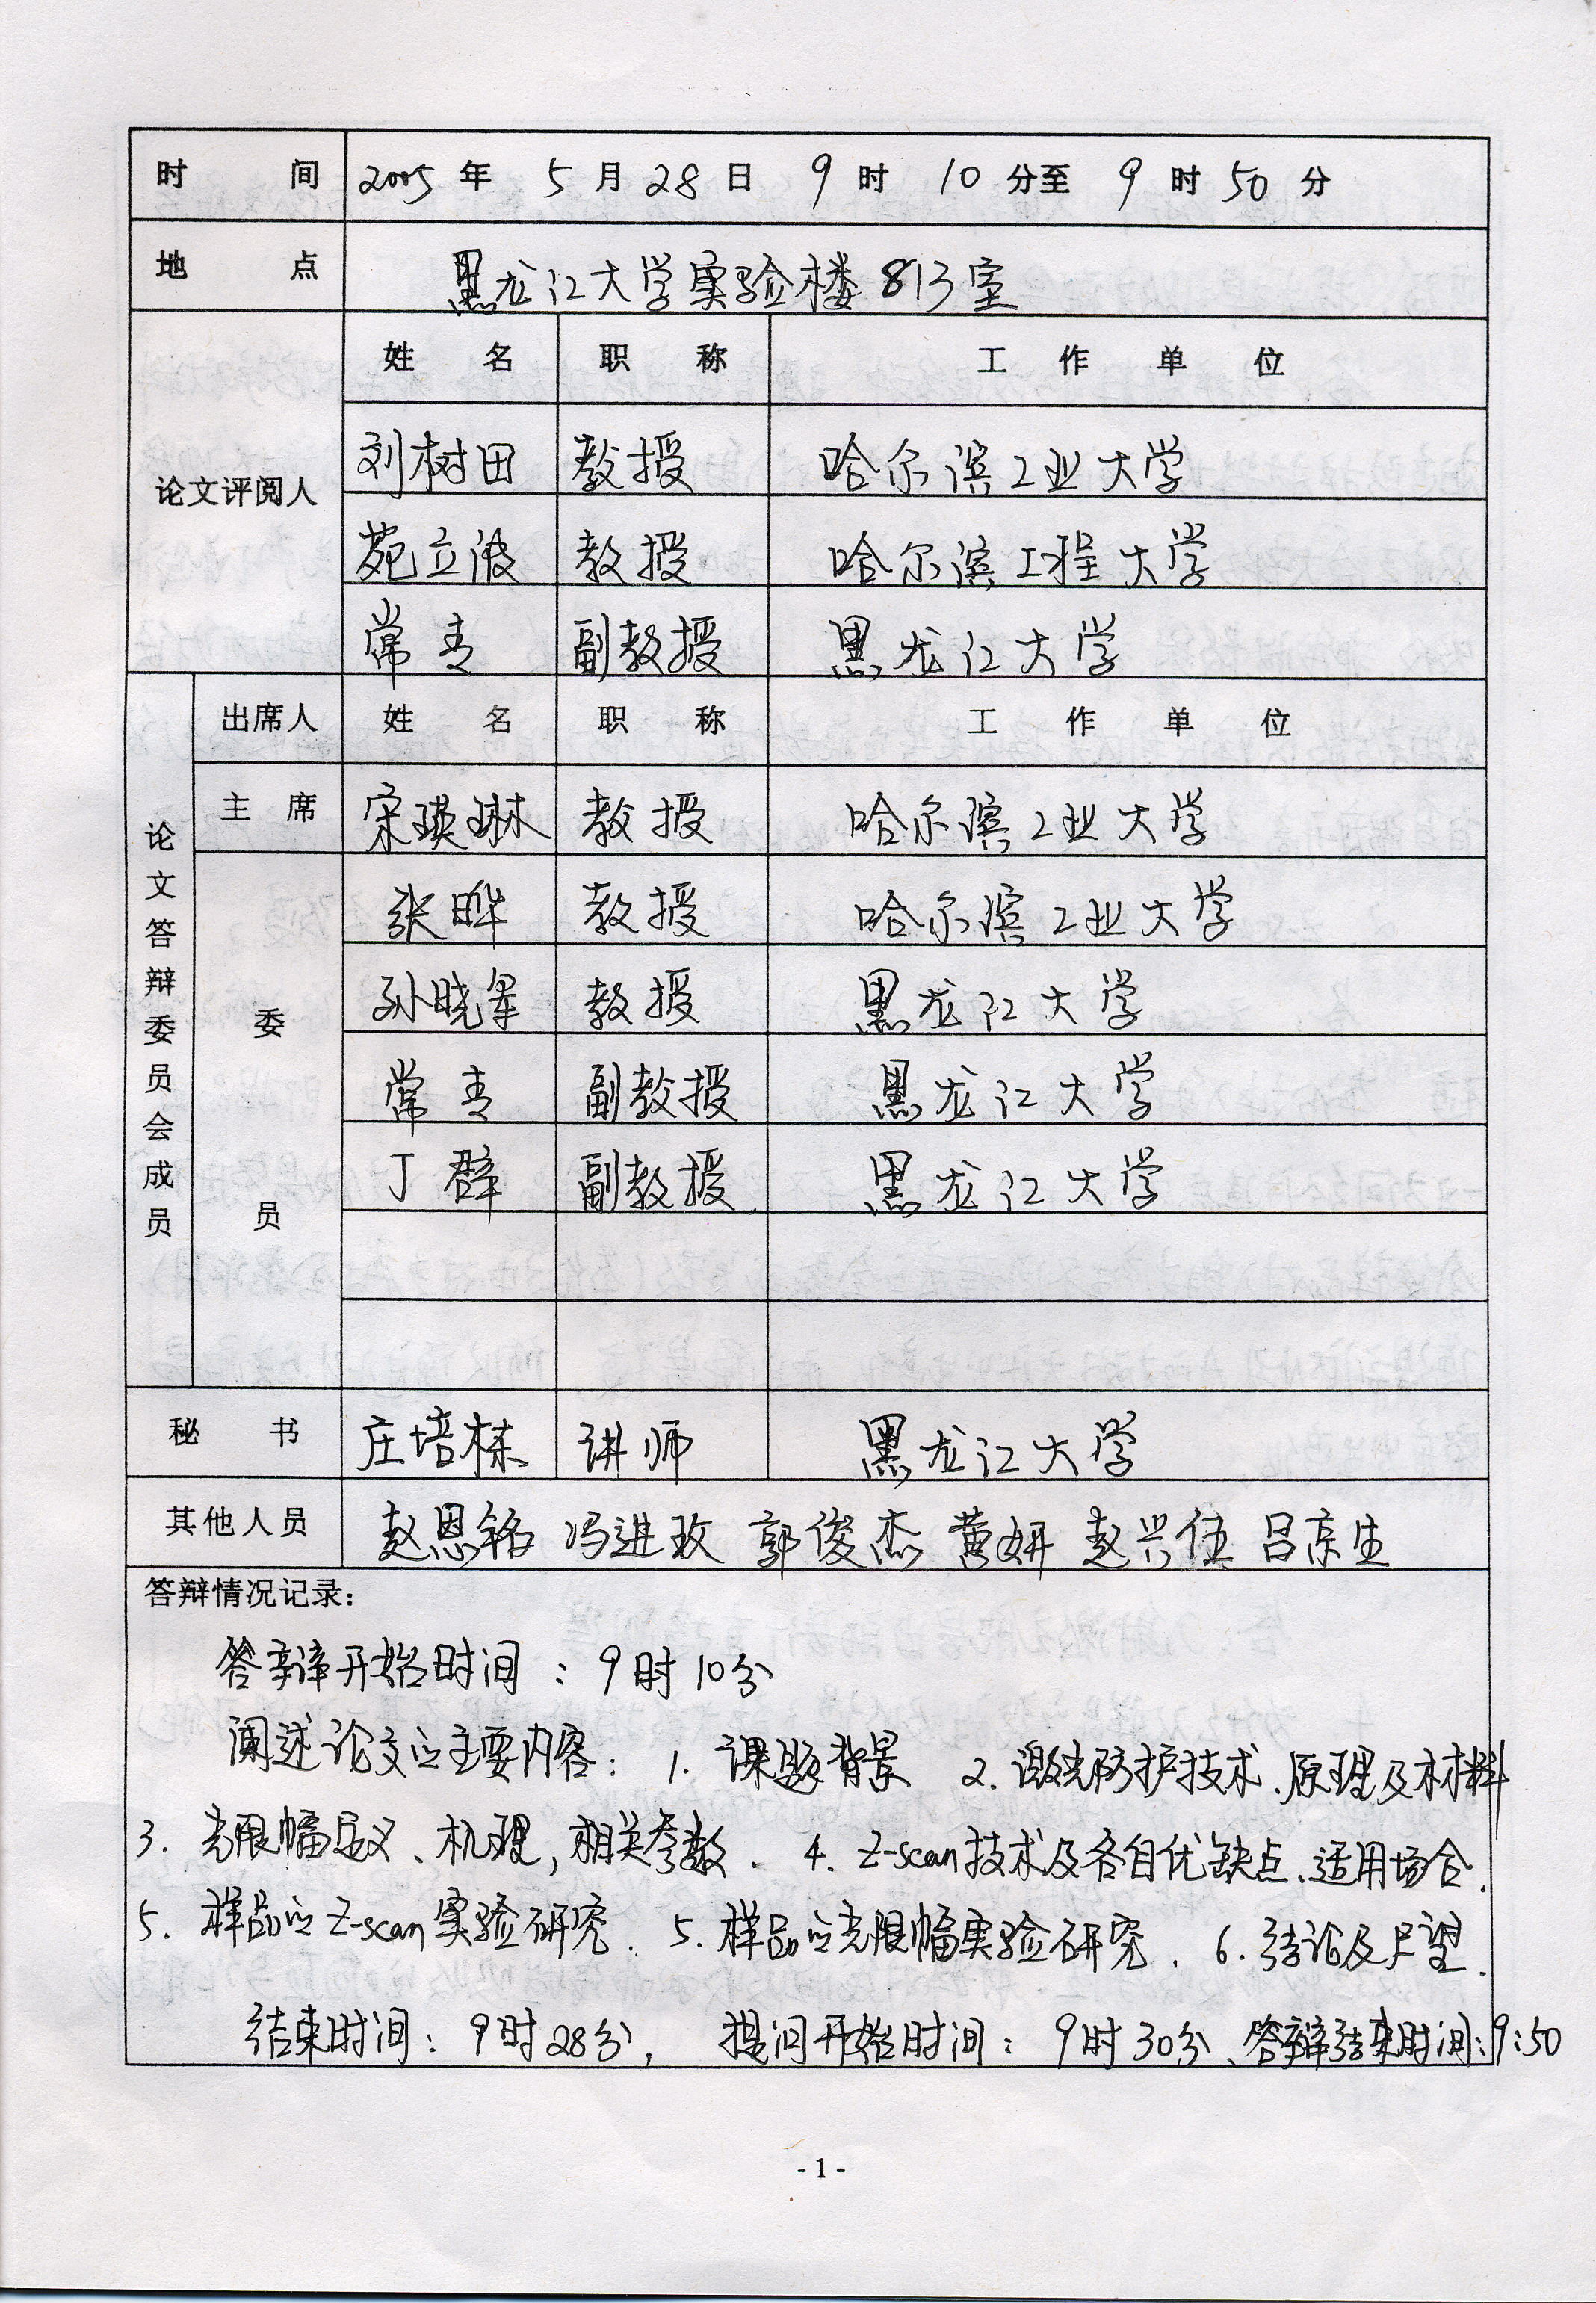 时 间 2005 年 5 月 28 日 9 时 10 分至 9 时 50 分
地 点 黑龙江大学实验楼 813 室
论文评阅人 姓 名 职 称 工 作 单 位
刘树田 教授 哈尔滨工业大学
苑立波 教授 哈尔滨工程大学
常青 副教授 黑龙江大学
论文答辩委员会成员 出席人 姓 名 职 称 工 作 单 位
主 席 宋瑛琳 教授 哈尔滨工业大学
委 员 张晔 教授 哈尔滨工业大学
孙晓军 教授 黑龙江大学
常青 副教授 黑龙江大学
丁群 副教授 黑龙江大学
秘 书 庄培栋 讲师 黑龙江大学
其他人员 赵恩铭 冯进玫 郭俊杰 黄妍 赵兴伍 吕京生
答辩情况记录:
答辩开始时间：9时10分
阐述论文的主要内容：1. 课题背景 2. 激光防护技术、原理及材料
3. 光限幅定义、机理,相关参数. 4. Z-scan技术及各自优缺点、适用场合.
5. 样品的Z-scan实验研究. 5. 样品的光限幅实验研究. 6. 结论及尸望.
结束时间：9时28分, 提问开始时间：9时30分、答辩结束时间：9:50
- 1 -